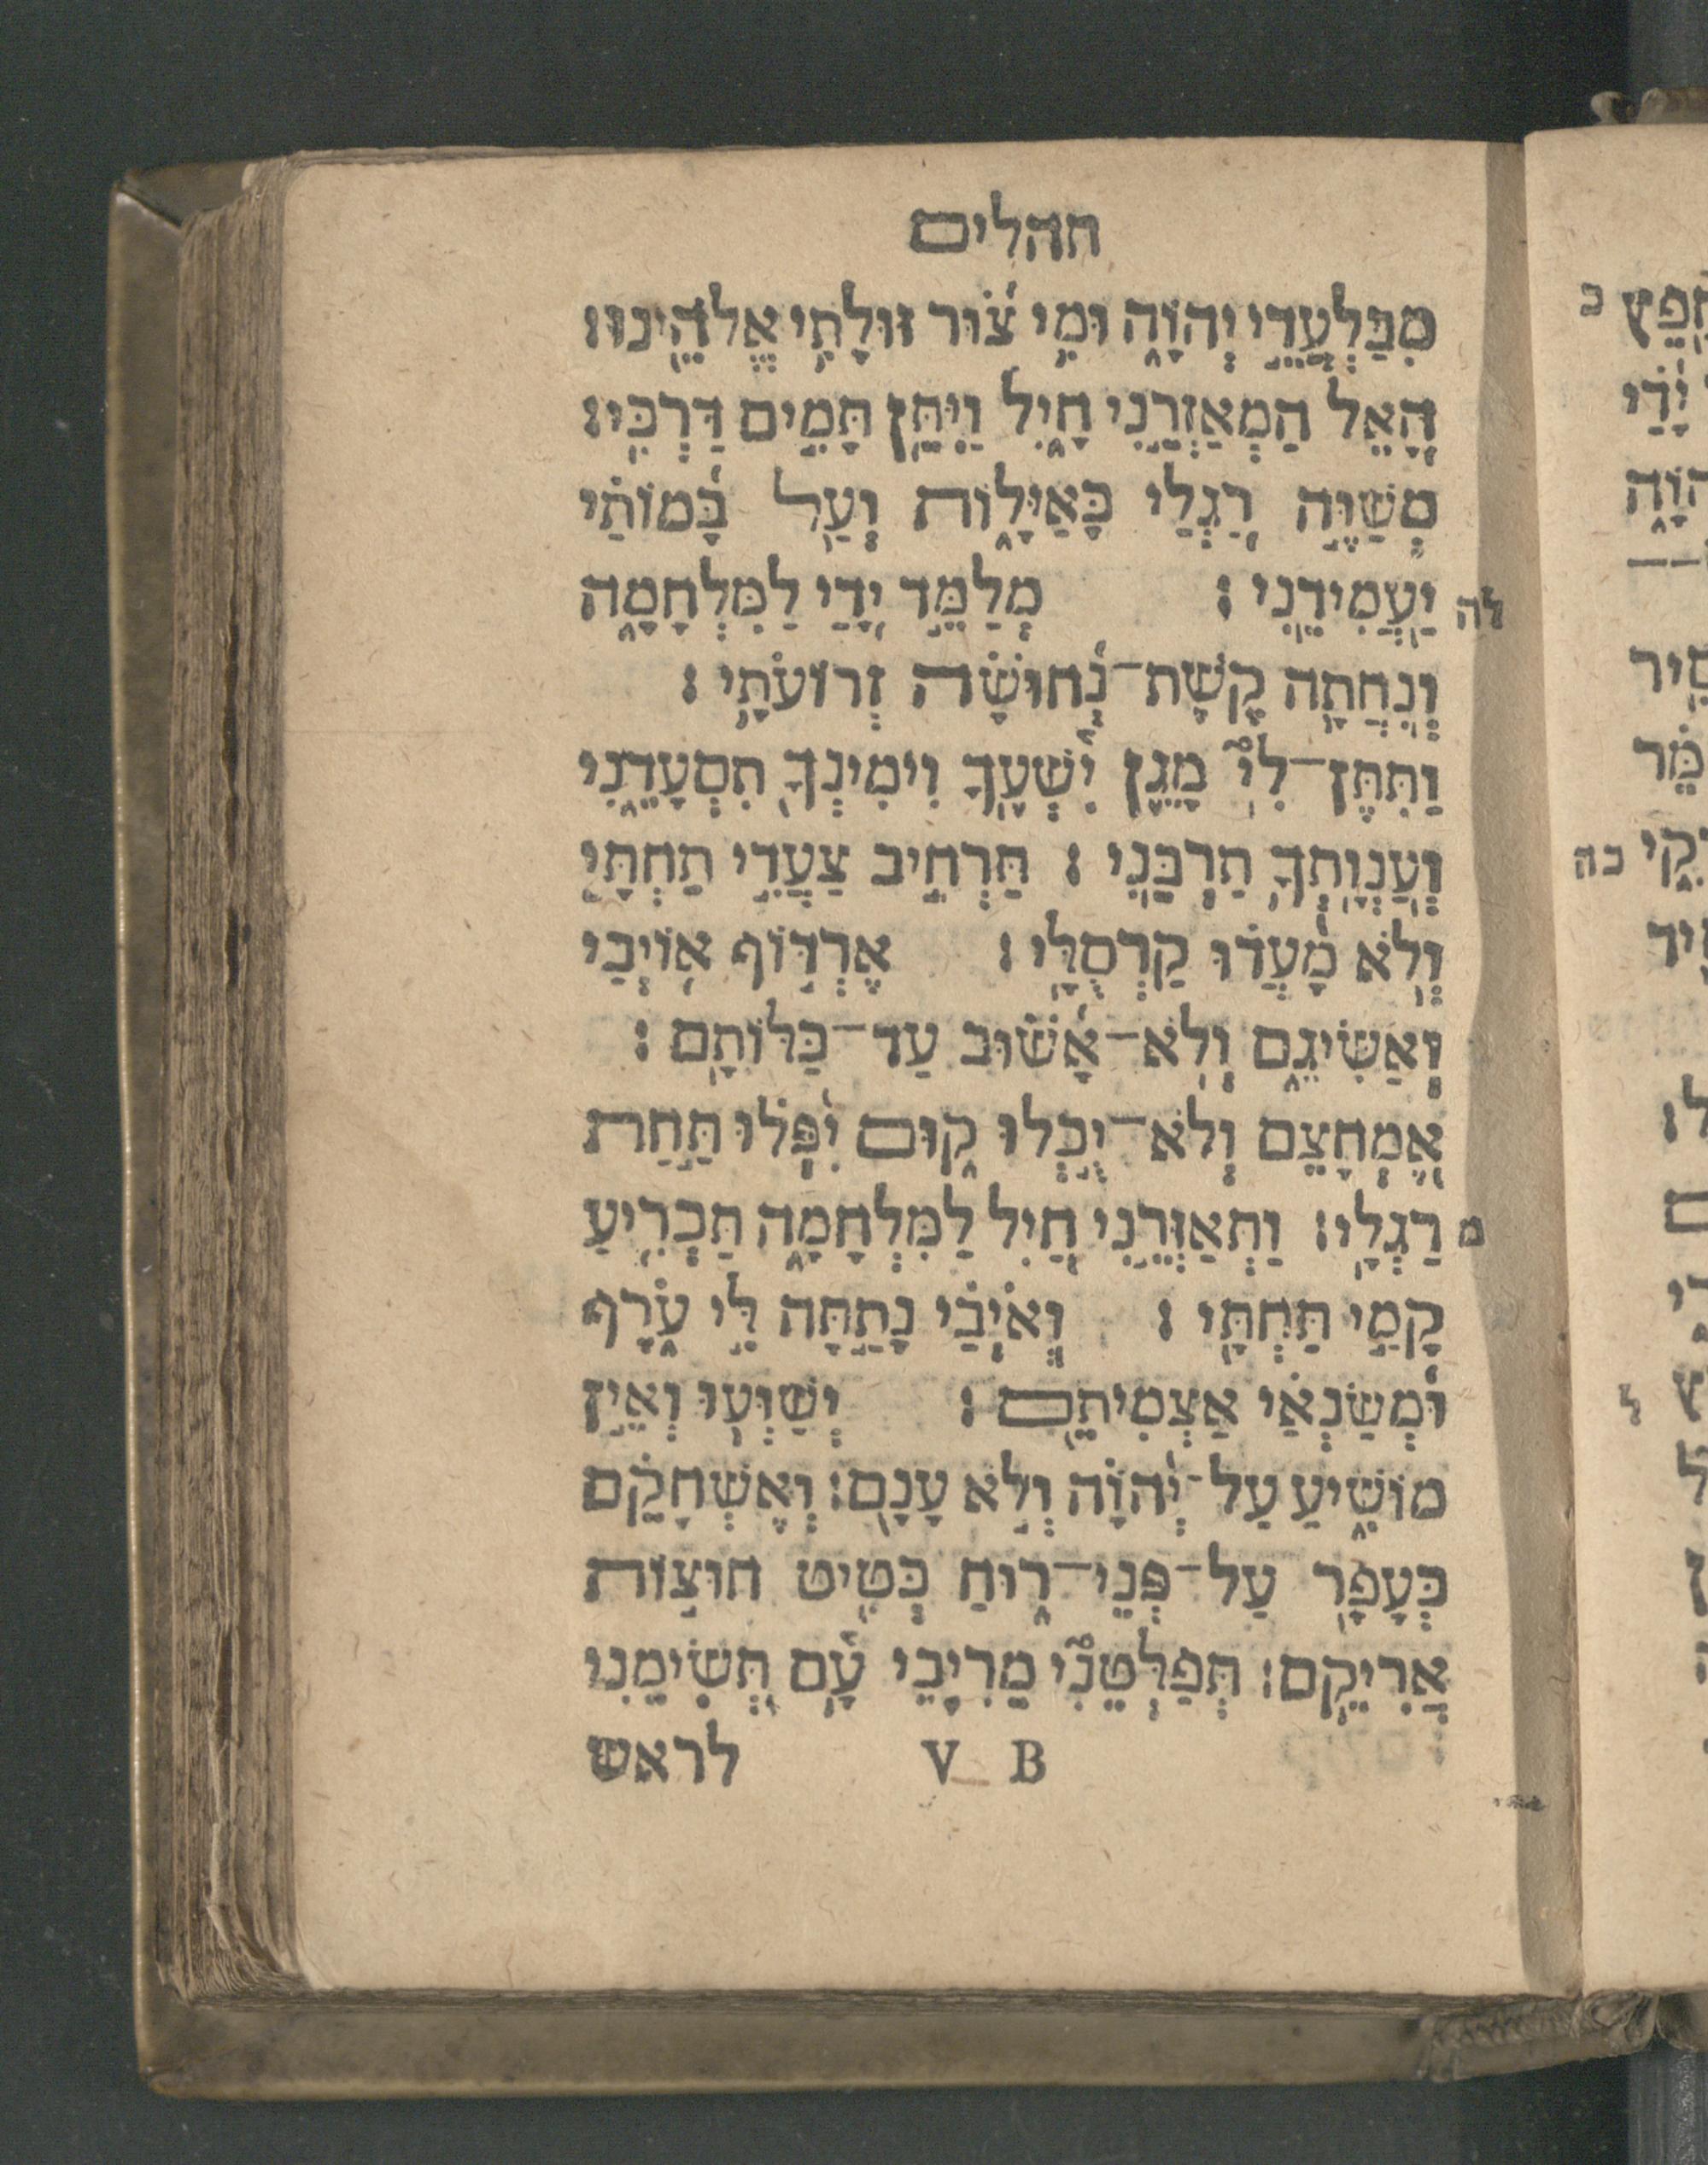 תהלים
מִבַּלְעֲדֵ֣י יְהוָ֑ה וּמִ֥י צ֝֗וּר זוּלָתִ֥י אֱלֹהֵֽינוּ׃
הָ֭אֵל הַמְאַזְּרֵ֣נִי חָ֑יִל וַיִּתֵּ֖ן תָּמִ֣ים דַּרְכִּֽי׃
מְשַׁוֶּ֣ה רַ֭גְלַי כָּאַיָּל֑וֹת וְעַ֥ל בָּ֝מוֹתַ֗י
לה יַעֲמִידֵֽנִי׃ מְלַמֵּ֣ד יָ֭דַי לַמִּלְחָמָ֑ה
וְֽנִחֲתָ֥ה קֶֽשֶׁת־נְ֝חוּשָׁ֗ה זְרוֹעֹתָֽי׃
וַתִּתֶּן־לִי֮ מָגֵ֪ן יִ֫שְׁעֶ֥ךָ וִימִינְךָ֥ תִסְעָדֵ֑נִי
וְֽעַנְוָתְךָ֥ תַרְבֵּֽנִי׃ תַּרְחִ֣יב צַעֲדִ֣י תַחְתָּ֑י
וְלֹ֥א מָ֝עֲד֗וּ קַרְסֻלָּֽי׃ אֶרְדּ֣וֹף א֭וֹיְבַי
וְאַשִּׂיגֵ֑ם וְלֹֽא־אָ֝שׁ֗וּב עַד־כַּלּוֹתָֽם׃
אֶ֭מְחָצֵם וְלֹא־יֻ֣כְלוּ ק֑וּם יִ֝פְּל֗וּ תַּ֣חַת
מ רַגְלָֽי׃ וַתְּאַזְּרֵ֣נִי חַ֭יִל לַמִּלְחָמָ֑ה תַּכְרִ֖יעַ
קָמַ֣י תַּחְתָּֽי׃ וְֽאֹיְבַ֗י נָתַ֣תָּה לִּ֣י עֹ֑רֶף
וּ֝מְשַׂנְאַ֗י אַצְמִיתֵֽם׃ יְשַׁוְּע֥וּ וְאֵ֣ין
מוֹשִׁ֑יעַ עַל־יְ֝הוָ֗ה וְלֹ֣א עָנָֽם׃ וְֽאֶשְׁחָקֵ֗ם
כְּעָפָ֥ר עַל־פְּנֵי־ר֑וּחַ כְּטִ֖יט חוּצ֣וֹת
אֲרִיקֵֽם׃ תְּפַלְּטֵנִי֮ מֵרִ֪יבֵ֫י עָ֥ם תְּ֭שִׂימֵנִי
V B לראש